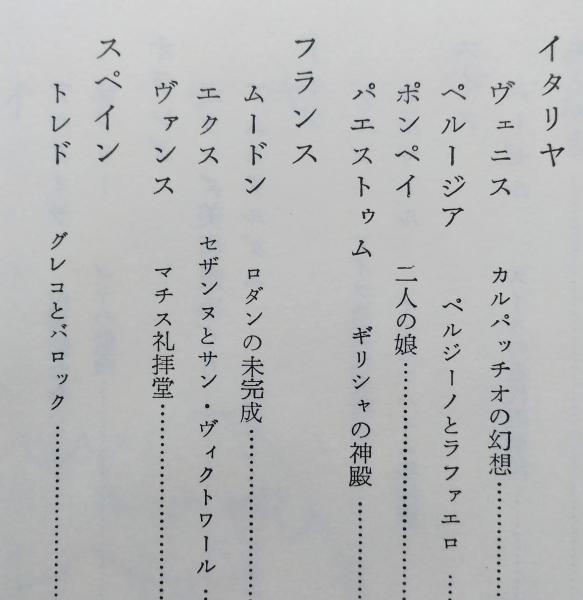 イタリヤ
ヴェニス　カルパッチオの幻想……………
ペルージア　ペルジーノとラファエロ……
ポンペイ　二人の娘……………………………
パエストゥム　ギリシャの神殿……………
フランス
ムードン　ロダンの未完成…………………
エクス　セザンヌとサン・ヴィクトワール…
ヴァンス　マチス礼拝堂……………………
スペイン
トレド　グレコとバロック…………………